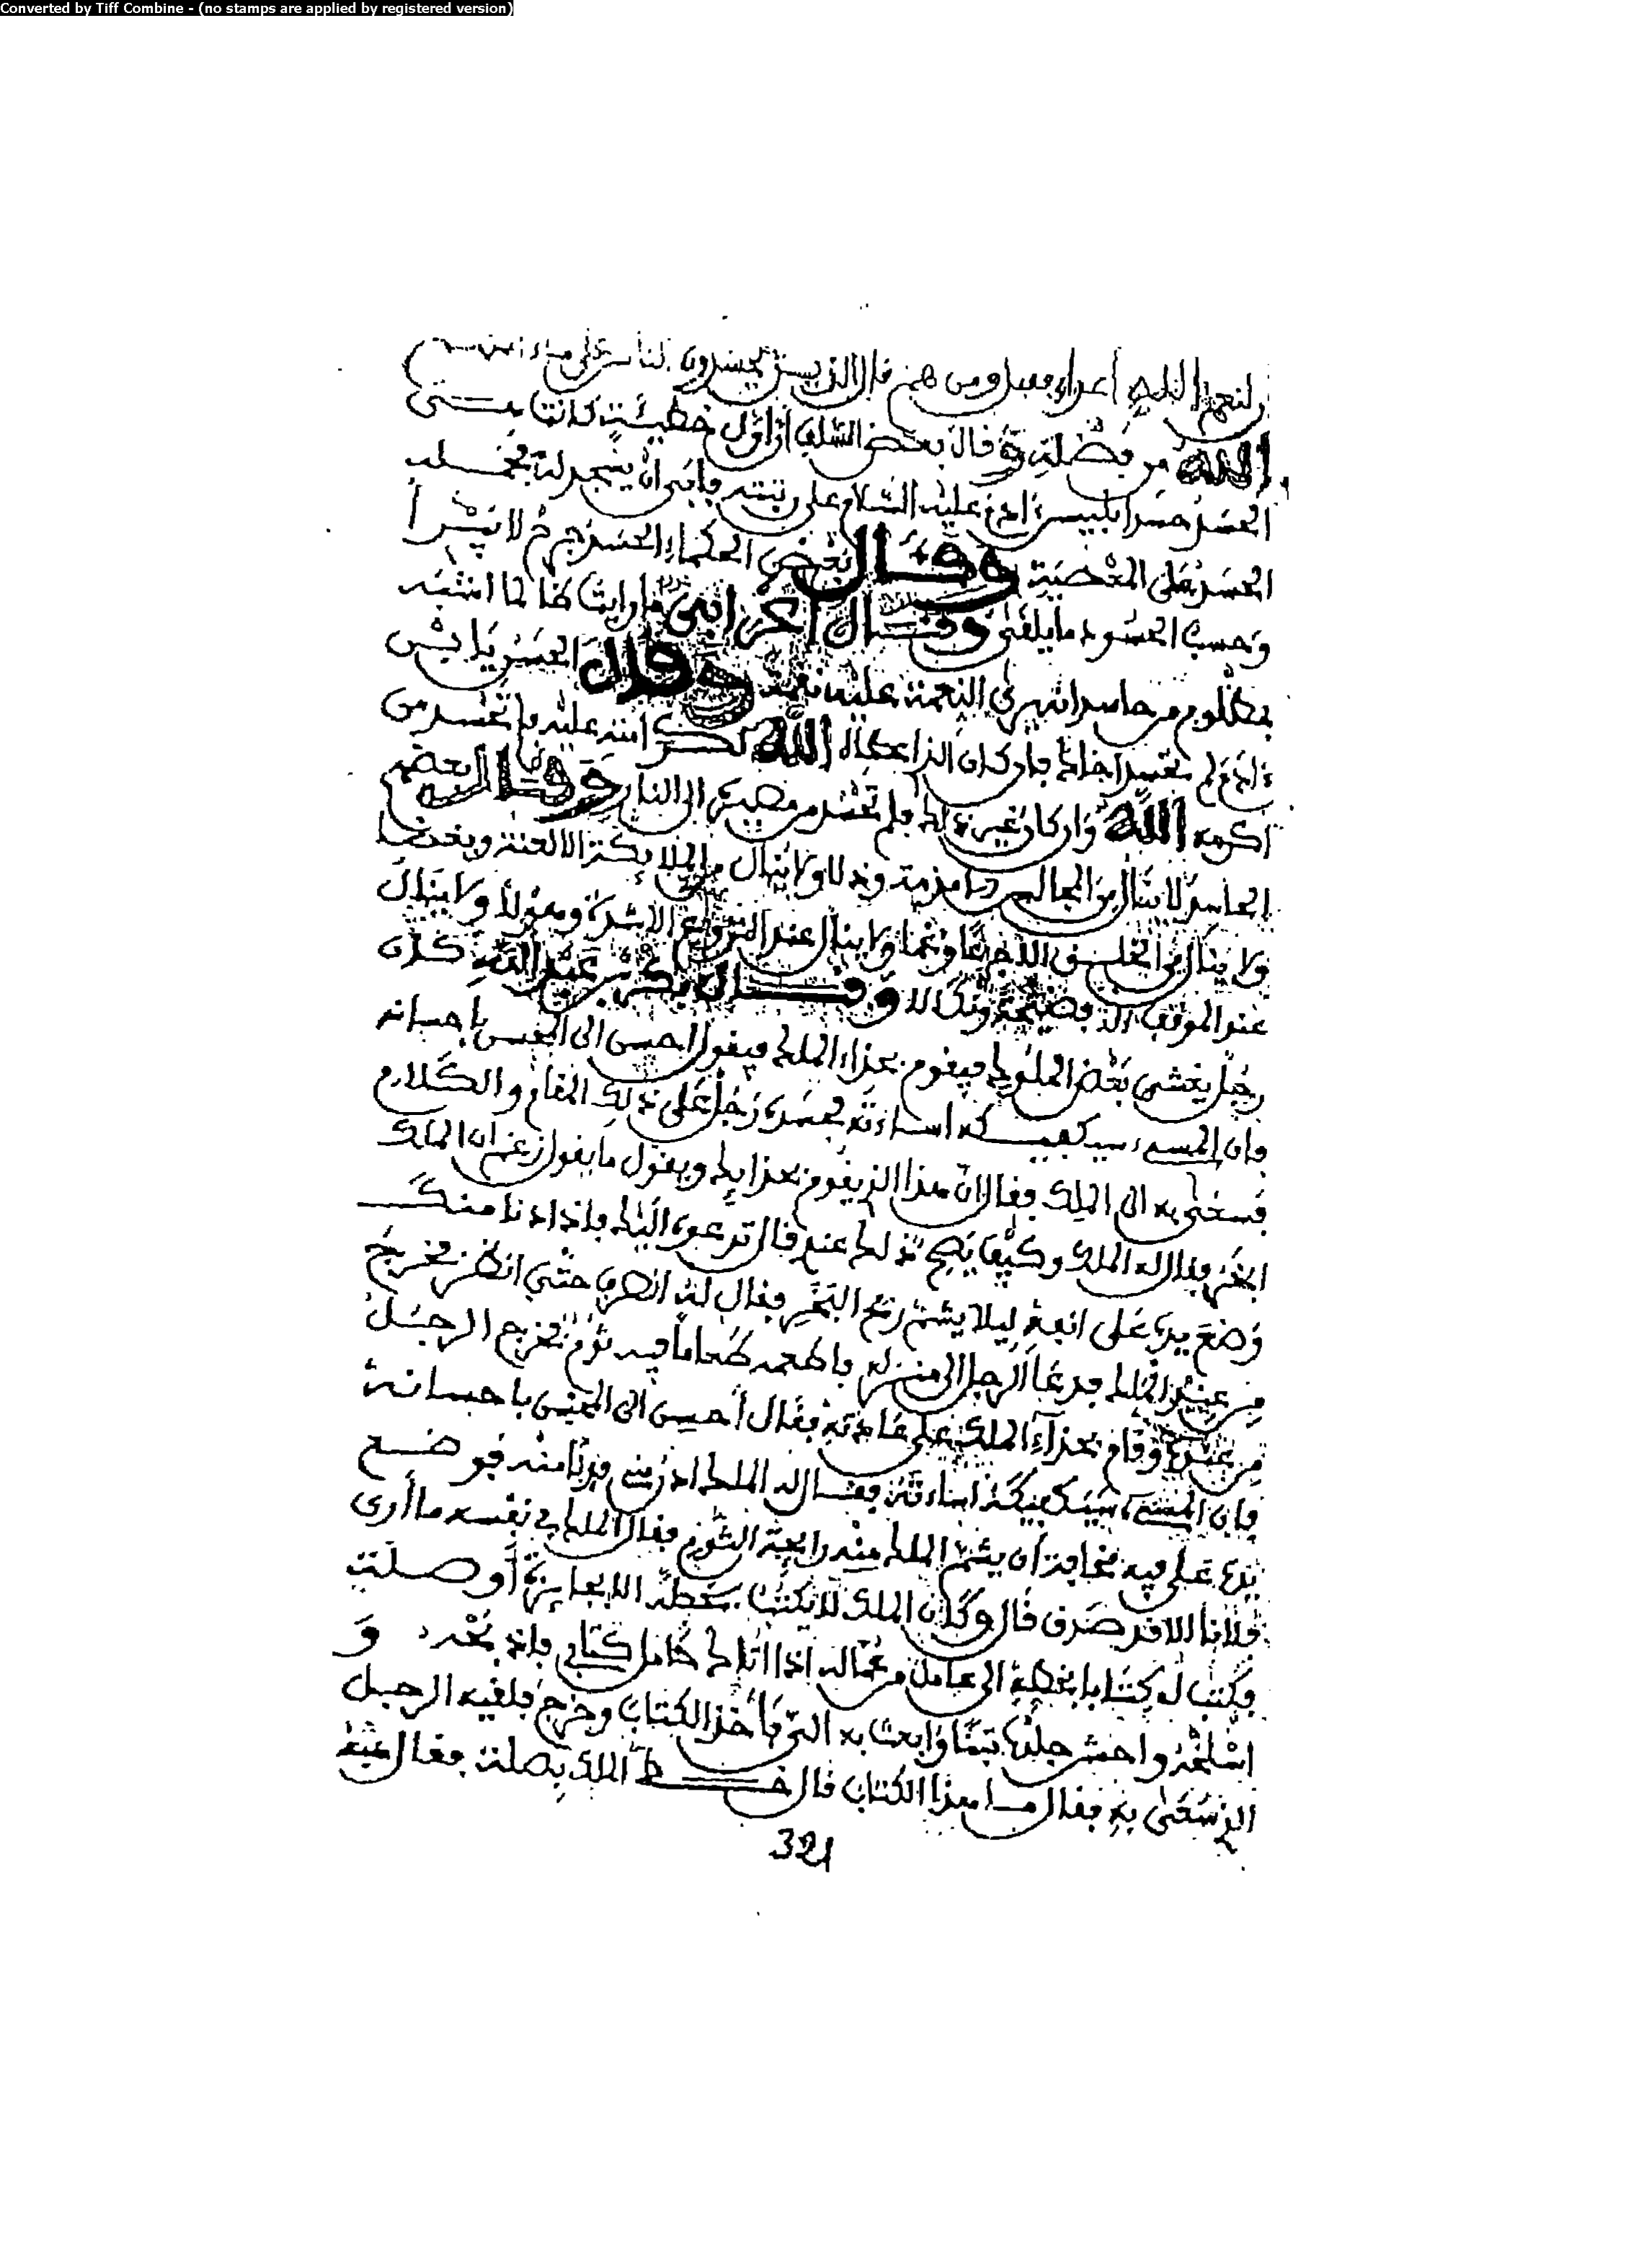 Converted by Tiff Combine - (no stamps are applied by registered version)
لنعم الله أعداء فقيل ومن هم قال الذين يحسدون الناس على ما
الله من فضله وقال بعض السلف ان اول خطيئة كانت هي
الحسد حسد ابليس ءادم عليه السلام على رتبته فابى ان يسجد له فحمله
الحسد على المعصية وقال بعض الحكماء الحسد جرح لا يبرأ
وحسب الحسود ما يلقى وقال اعرابي ما رايت ظالما اشبه
بمظلوم من حاسد انه يرى النعمة عليه نقمة وقال الحسن يا ابن
ءادم لم تحسد اخاك فان كان الذي اعطاه الله لكرامته عليه فلم تحسد من
اكرمه الله وان كان غير ذلك فلم تحسد من مصيره الى النار وقال بعضهم
الحاسد لا ينال من المجالس الا مذمة وذلا ولا ينال من الملائكة الا لعنة وبغضا
ولا ينال من الخلق الا جزعا وغما ولا ينال عند النزع الا شدة وهولا ولا ينال
عند الموقف الا فضيحة ونكالا وقال بكر بن عبد الله كان
رجل يغشى بعض الملوك فيقوم بحذاء الملك فيقول احسن الى المحسن باحسانه
فان المسيء سيكفيكه اساءته فحسده رجل على ذلك المقام والكلام
فسعى به الى الملك فقال ان هذا الذي يقوم بحذائك ويقول ما يقول زعم ان الملك
ابخر فقال له الملك وكيف يصح ذلك عندي قال تدعوه اليك فاذا دنا منك
وضع يده على انفه ليلا يشم ريح البخر فقال له انصرف حتى انظر فخرج
من عند الملك فدعا الرجل الى منزله فاطعمه طعاما فيه ثوم فخرج الرجل
من عنده وقام بحذاء الملك على عادته فقال احسن الى المحسن باحسانه
فان المسيء سيكفيكه اساءته فقال له الملك ادن مني فدنا منه فوضع
يده على فيه مخافة ان يشم الملك منه رايحة الثوم فقال الملك في نفسه ما أرى
فلانا الا قد صدق قال وكان الملك لا يكتب بخطه الا بجايزة أو صلة
فكتب له كتابا بخطه الى عامل من عماله اذا اتاك حامل كتابي فاذبحه و
اسلخه واحش جلده تبنا وابعث به الي فأخذ الكتاب وخرج فلقيه الرجل
الذي سعى به فقال ما هذا الكتاب قال خط الملك بصلة فقال هبه
321